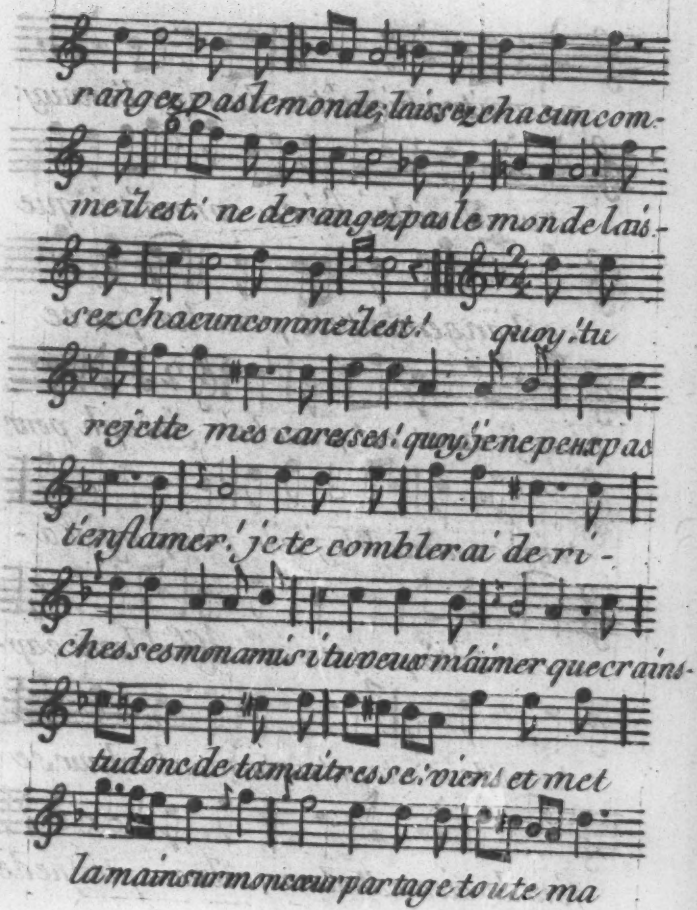 rangez pas le monde; laissez chacun com-
me il est! ne derangez pas le monde lais-
sez chacun comme il est! quoy! tu
rejette mes caresses! quoy! je ne peux pas
t'enflamer! je te comblerai de ri-
chesses mon ami si tu veux m'aimer que crains-
tu donc de ta maitresse! viens et met
la main sur mon cœur partage toute ma